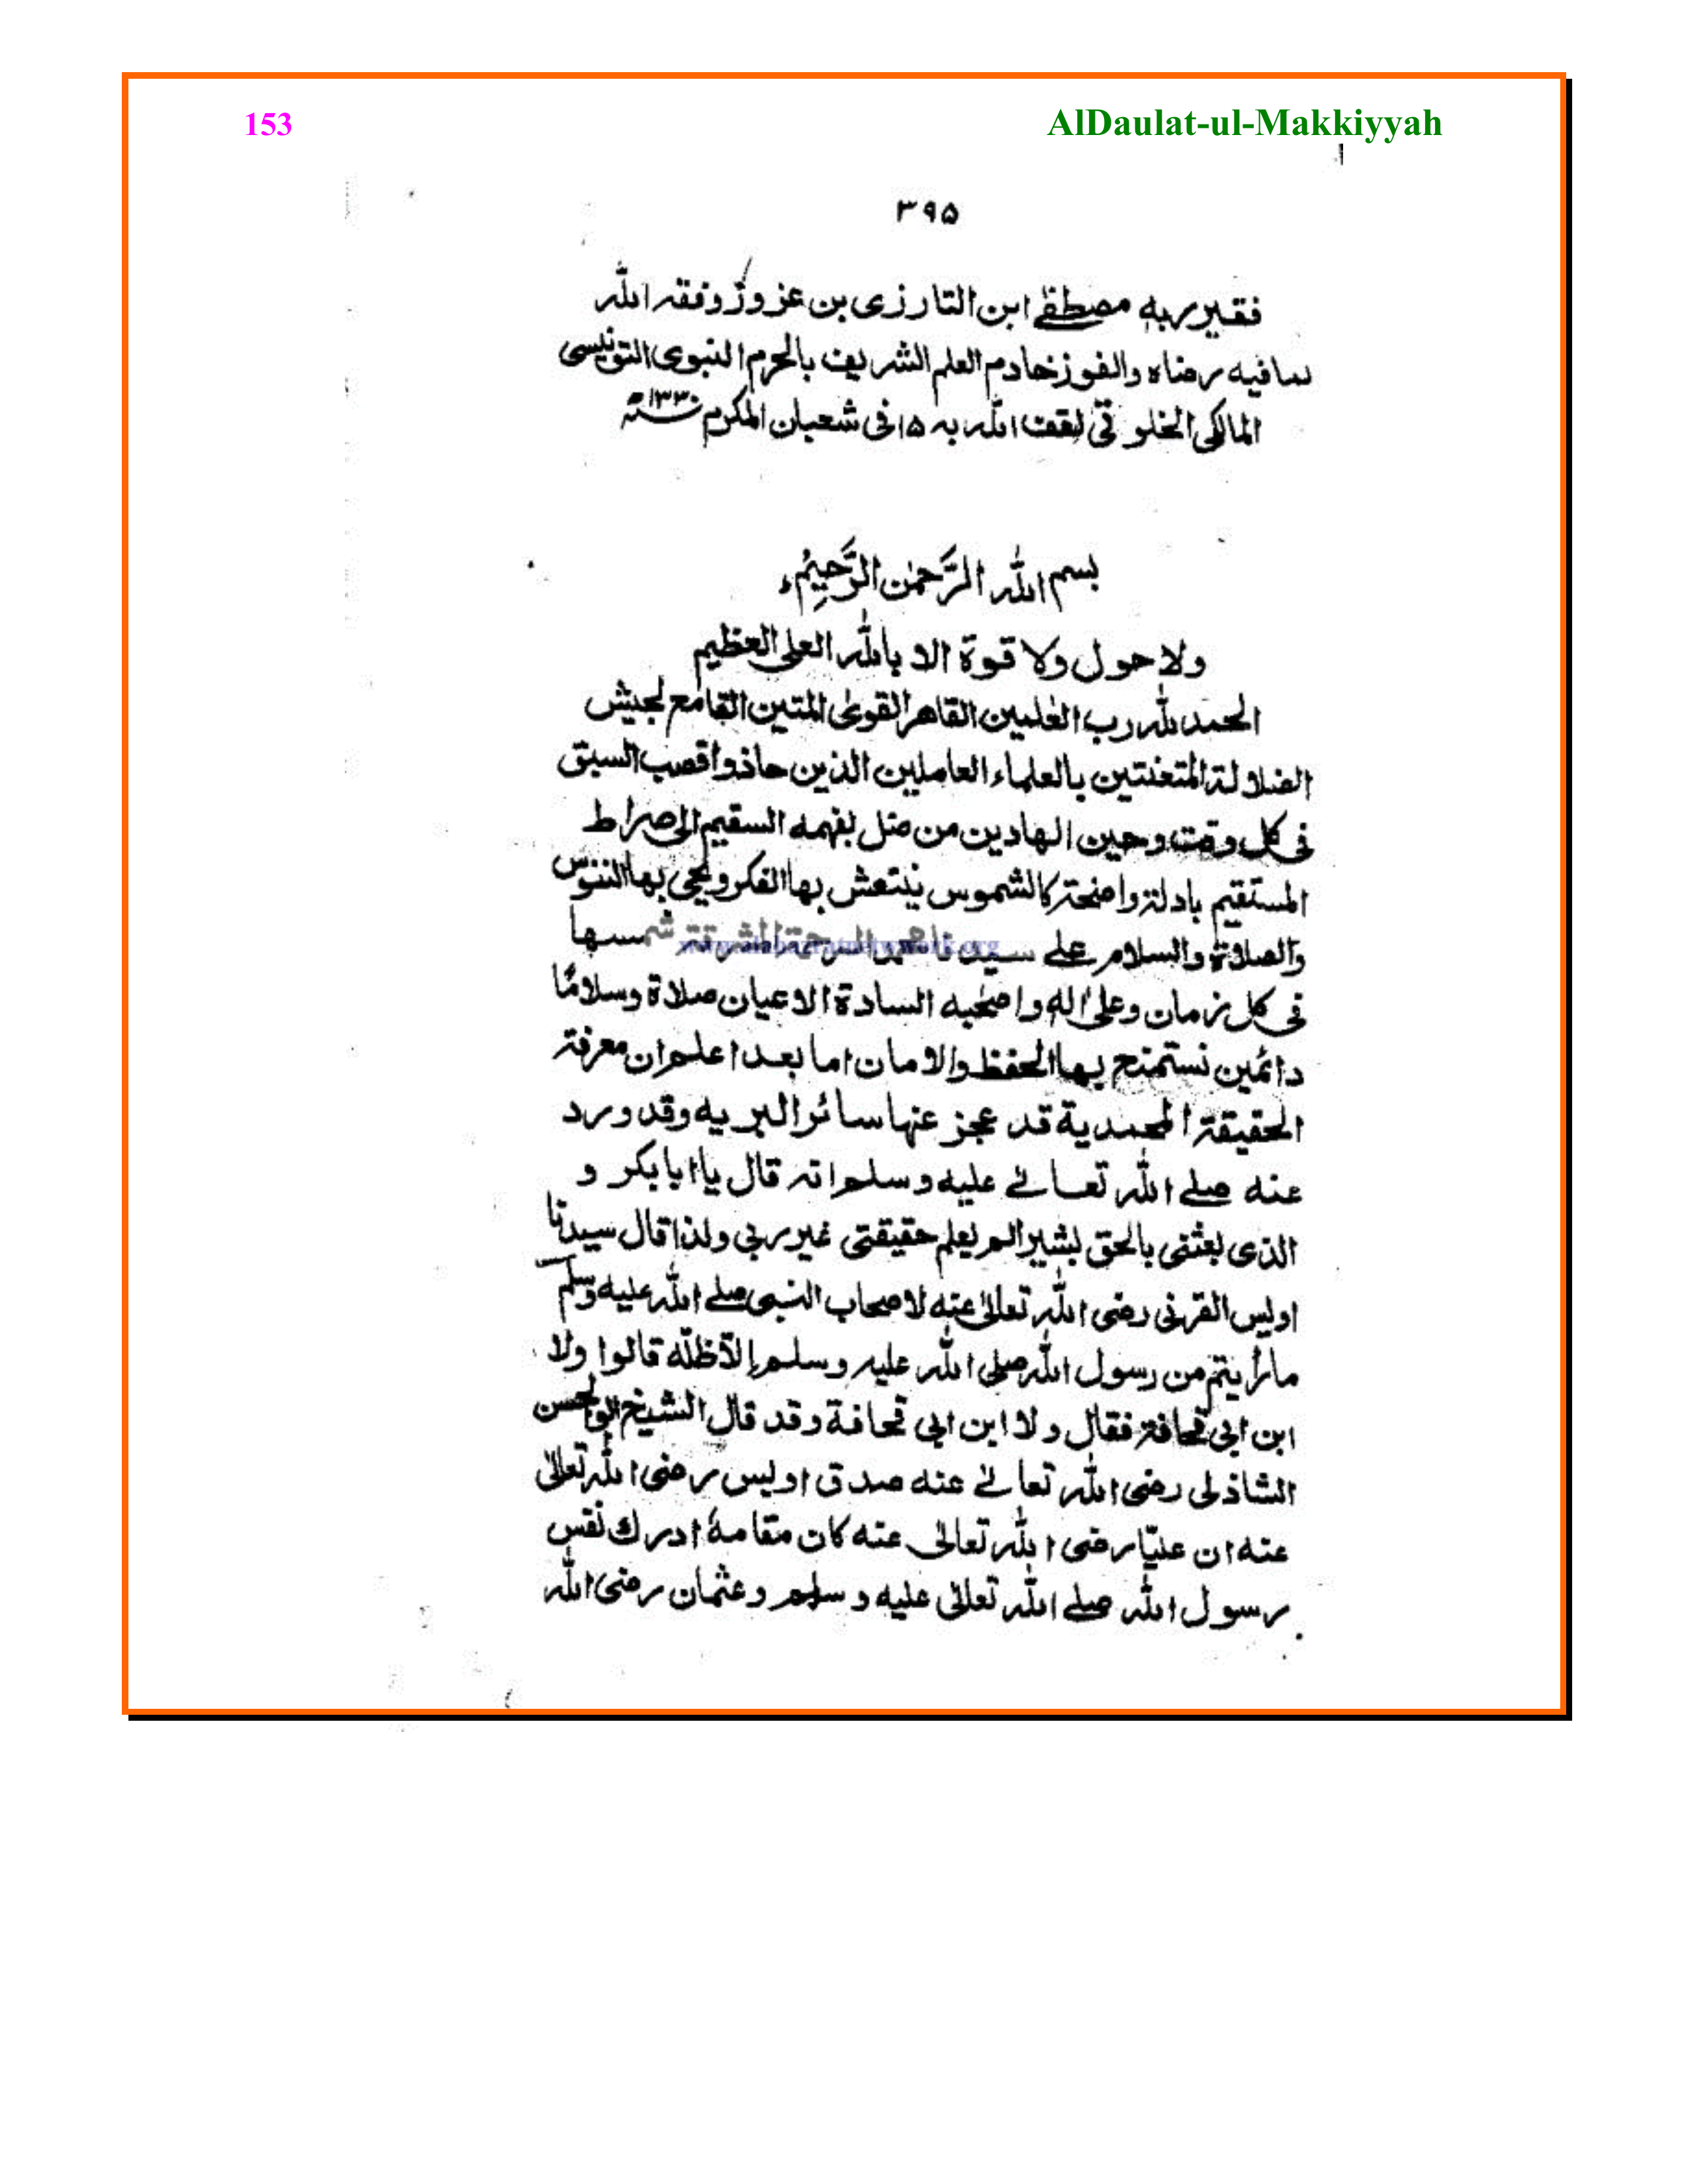 153
AlDaulat-ul-Makkiyyah
۳۹۵
فقير ربه مصطفےٰ ابن التارزى بن عزوز وفقه الله
لما فيه رضاه والفوز خادم العلم الشريف بالحرم النبوى التونيسى
المالكى الخلوتى لقف الله به ۱۵ فى شعبان المكرم سنة ۱۳۳۰ھ
بسم الله الرَّحمٰن الرَّحِيْمِ
ولا حول ولا قوة الا بالله العلى العظيم
الحمد لله رب العٰلمين القاهر القوى المتين القامع لجيش
الضلالة المتعنتين بالعلماء العاملين الذين حاذوا قصب السبق
فى كل وقت وحين الهادين من ضل بفهمه السقيم الى صراط
المستقيم بادلة واضحة كالشموس ينتعش بها الفكر ويحيى بها النفوس
والصلاة والسلام على سيدنا محمد المشرقة شمسها
www.alahazratnetwork.org
فى كل زمان وعلىٰ اله واصحٰبه السادة الاعيان صلاة وسلامًا
دائمين نستمنح بها الحفظ والامان اما بعد اعلم ان معرفة
الحقيقة المحمدية قد عجز عنها سائر البريه وقد ورد
عنه صلے الله تعالےٰ عليه وسلم انه قال يا ابا بكر و
الذى بعثنى بالحق بشيرا لم يعلم حقيقتى غير ربى ولذا قال سيدنا
اويس القرنى رضى الله تعالىٰ عنه لاصحاب النبى صلے الله عليه وسلم
ما رأيتم من رسول الله صلى الله عليه وسلم إلّا ظلّه قالوا ولا
ابن ابى قحافة فقال ولا ابن ابى قحافة وقد قال الشيخ ابوالحسن
الشاذلى رضى الله تعالےٰ عنه صدق اويس رضى الله تعالىٰ
عنه ان عليّا رضى الله تعالىٰ عنه كان مقامهٗ ادرك نفس
رسول الله صلے الله تعالىٰ عليه وسلم وعثمان رضى الله